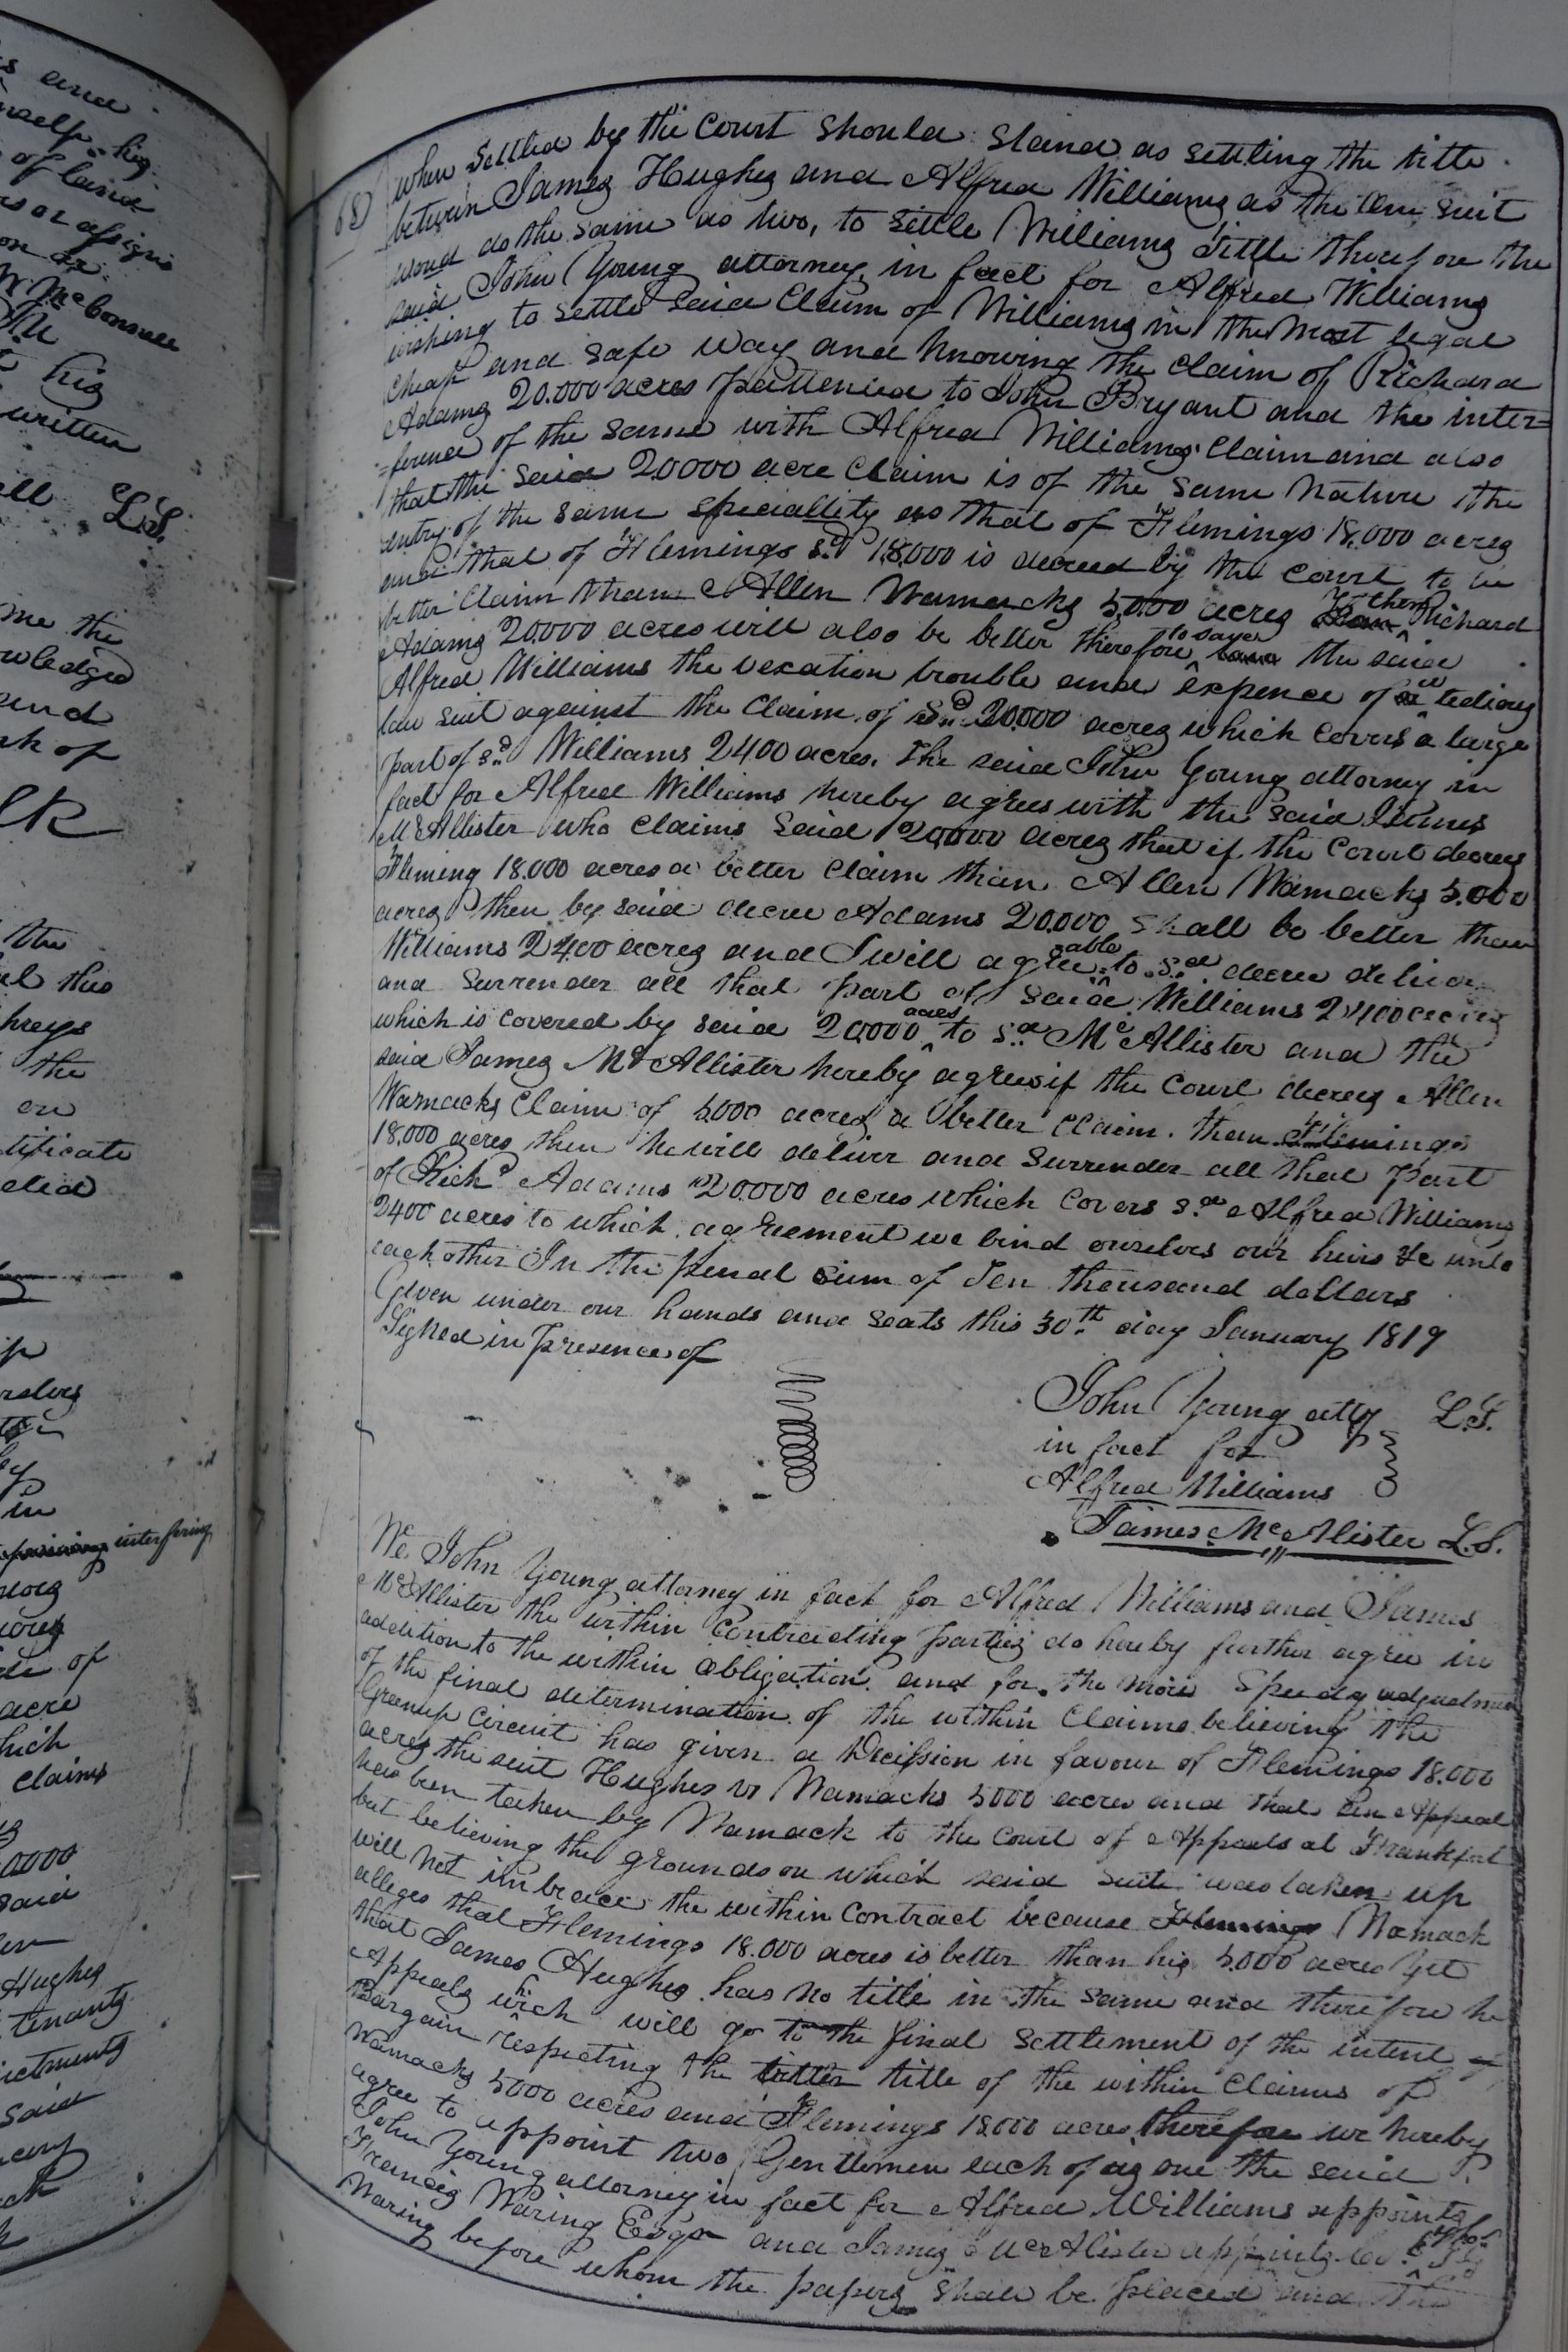 s and
mself his
of land
rs or assigns
on &c.
W McConnell
his
written
ell L.S.
me the
wledged
and
rk of
the
al this
hreys
the
on
tificate
in
interfering
de of
acre
hich
Claims
0000
said
Hughes
tenants
ictments
said
68)
when settled by the Court should stand as settling the title
between James Hughes and Alfred Williams as the one suit
woud do the same as two, to settle Williams Title therefore the
said John Young attorney in fact for Alfred Williams
wishing to settle said Claim of Williams in the most legal
cheap and safe way and knowing the claim of Richard
Adams 20.000 acres pattented to John Bryant and the inter=
=ference of the same with Alfred Williams Claim and also
that the said 20000 acre Claim is of the same nature the
entry of the same speciallity as that of Flemings 18.000 acres
and that of Flemings sd 18.000 is decreed by the Court to be
better Claim than Allen Wamacks 5.000 acres then Richard
Adams 20000 acres will also be better therefore to save the said
Alfred Williams the vexation trouble and expence of a tedious
law suit against the Claim of sd 20.000 acres which covers a large
part of sd Williams 2400 acres. The said John Young attorney in
fact for Alfred Williams hereby agrees with the said James
McAllister who claims said 20000 acres that if the Court decrees
Fleming 18.000 acres a better Claim than Allen Wamacks 5.000
acres then by said decree Adams 20.000 shall be better than
Williams 2400 acres and I will agreeable to sd decree deliver
and surrender all that part of said Williams 2400 acres
which is covered by said 20000 acres to sd McAllister and the
said James McAllister hereby agrees if the Court decrees Allen
Wamacks Claim of 5000 acres a better Claim than Flemings
18.000 acres then he will deliver and surrender all that part
of Richd Adams 20000 acres which Covers sd Alfred Williams
2400 acres to which agreement we bind ourselves our heirs &c unto
each other In the penal sum of Ten thousand dollars
Given under our hands and seals this 30th day January 1819
Signed in presence of
John Young atty L.S.
in fact for
Alfred Williams
James McAllister L.S.
We John Young attorney in fact for Alfred Williams and James
McAllister the within Contracting parties do hereby further agree in
addition to the within obligation and for the more speedy adjustment
of the final determination of the within Claims believing the
Greenup Circuit has given a Decission in favour of Flemings 18.000
acres the suit Hughes vs Wamacks 5000 acres and that an Appeal
has been taken by Wamack to the Court of Appeals at Frankfort
but believing the grounds on which said suit was taken up
will not imbrace the within Contract because Wamack
alleges that Flemings 18.000 acres is better than his 5.000 acres yet
that James Hughes has no title in the same and therefore he
Appeals which will go to the final settlement of the intent
Bargain respecting the title of the within Claims of
Wamacks 5000 acres and Flemings 18000 acres therefore we hereby
agree to appoint two Gentlemen each of us one the said
John Young attorney in fact for Alfred Williams appoints
Francis Waring Esqr and James McAlister appoints
Waring before whom the papers shall be placed and the